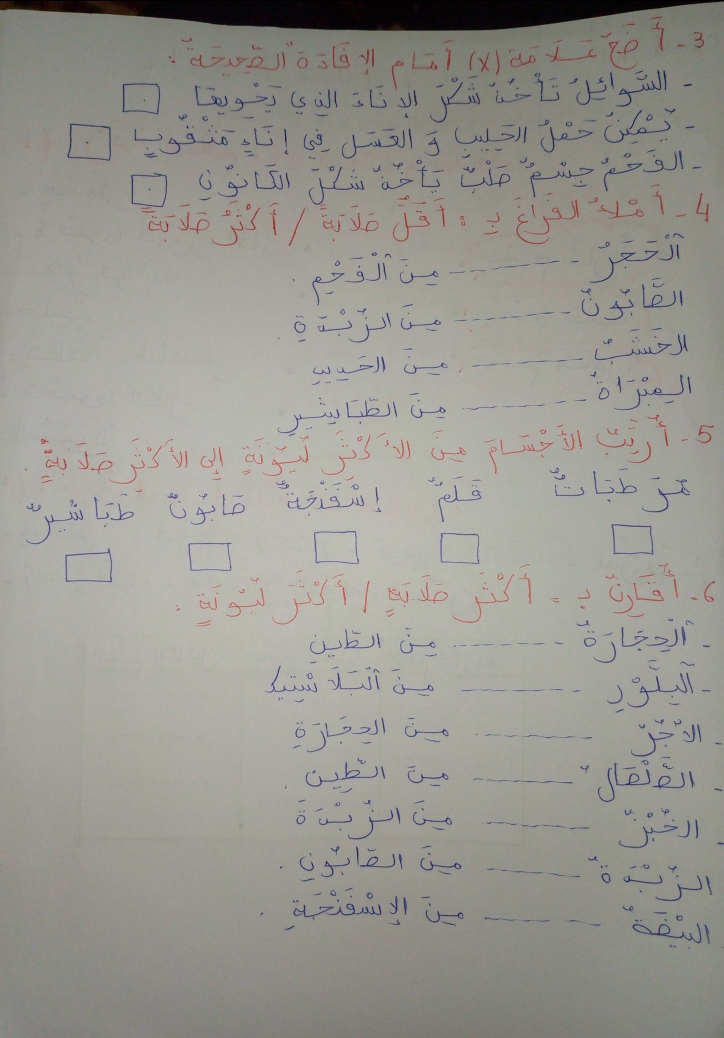 3- أَضَعُ عَلَامَة (x) أَمَام الإِفَادَة الصَّحِيحَة :
- السَّوائِلُ تَأْخُذُ شَكْلَ الإِنَاءَ الذِي يَحْوِيهَا
- يُمْكِنُ حَمْلُ الحَلِيبِ وَ العَسَلِ فِي إِنَاءٍ مَثْقُوبٍ
- الفَحْمُ جِسْمٌ صَلْبٌ يَأْخُذُ شَكْلَ الكَانُونِ
4- أَمْلَأُ الفَرَاغَ بِـ : أَقَلُّ صَلَابَةً / أَكْثَرُ صَلَابَةً
اَلْحَجَرُ ------ مِنَ اَلْفَحْمِ .
الصَّابُونُ ------ مِنَ الزُّبْدَةِ .
الخَشَبُ ------ مِنَ الحَدِيدِ
المِبْرَاةُ ------ مِنَ الطَّبَاشِيرِ
5- أُرَتِّبُ الأَجْسَامَ مِنَ الأَكْثَرِ لُيُونَةٍ إِلى الأَكْثَرِ صَلَابَةٍ .
مُرَطَّبَاتٌ قَلَمٌ إِسْفَنْجَةٌ صَابُونٌ طَبَاشِيرٌ
6- أُقَارِنُ بِـ : أَكْثَرَ صَلَابَةٍ / أَكْثَرَ لُيُونَةٍ :
- اَلْحِجَارَةُ ------ مِنَ الطِّينِ
- اَلْبِلَّوْرِ ------ مِنَ اَلْبلَاسْتِيك
- الآجُرُّ ------ مِنَ الحِجَارَةِ
- الصَّلْصَالُ ------ مِنَ الطِّينِ .
- الخُبْزُ ------ مِنَ الزُّبْدَةَ
الزُّبْدَةُ ------ مِنَ الصَّابُونِ .
البَيْضَةُ ------ مِنَ الإِسْفَنْجَةِ .